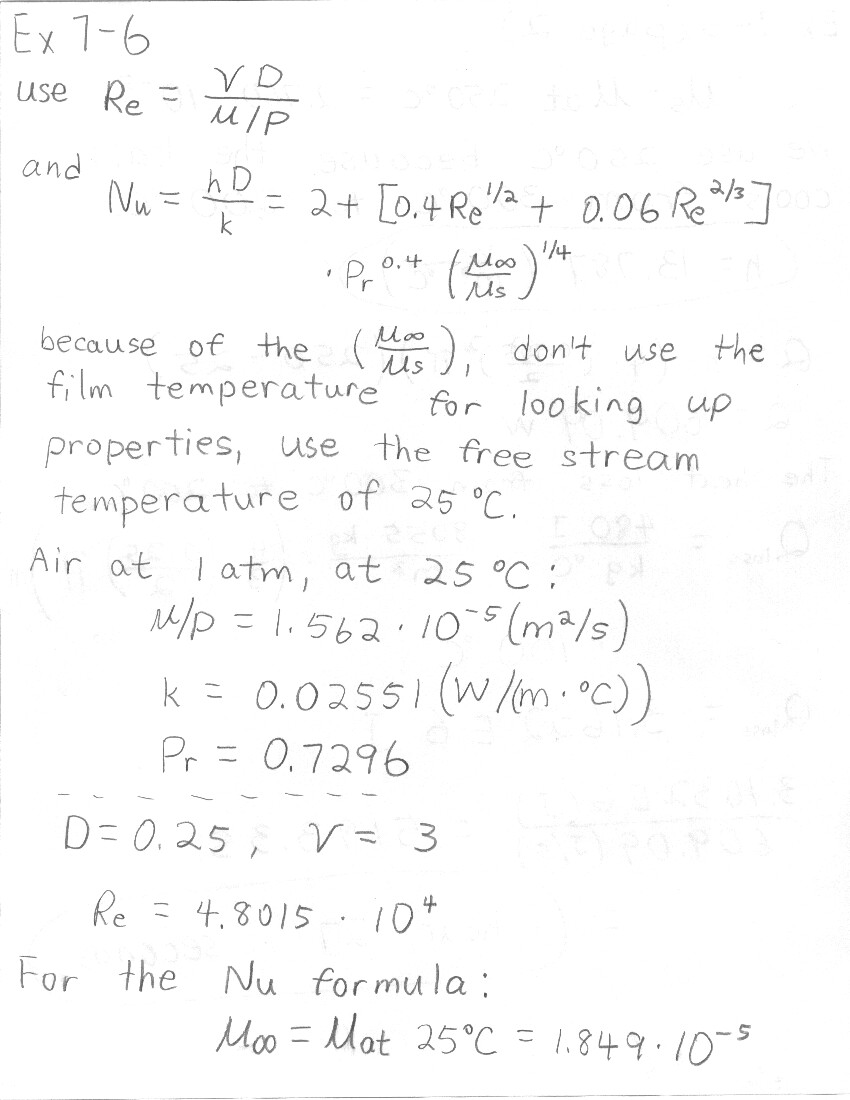 Ex 7-6
use Re = VD / (μ/ρ)
and
Nu = hD/k = 2 + [0.4 Re^1/2 + 0.06 Re^2/3]
· Pr^0.4 (μ∞/μs)^1/4
because of the (μ∞/μs), don't use the
film temperature for looking up
properties, use the free stream
temperature of 25 °C.
Air at 1 atm, at 25 °C:
μ/ρ = 1.562 · 10^-5 (m²/s)
k = 0.02551 (W/(m·°C))
Pr = 0.7296
- - - - - - - - -
D = 0.25, V = 3
Re = 4.8015 · 10^4
For the Nu formula:
μ∞ = μat 25°C = 1.849·10^-5